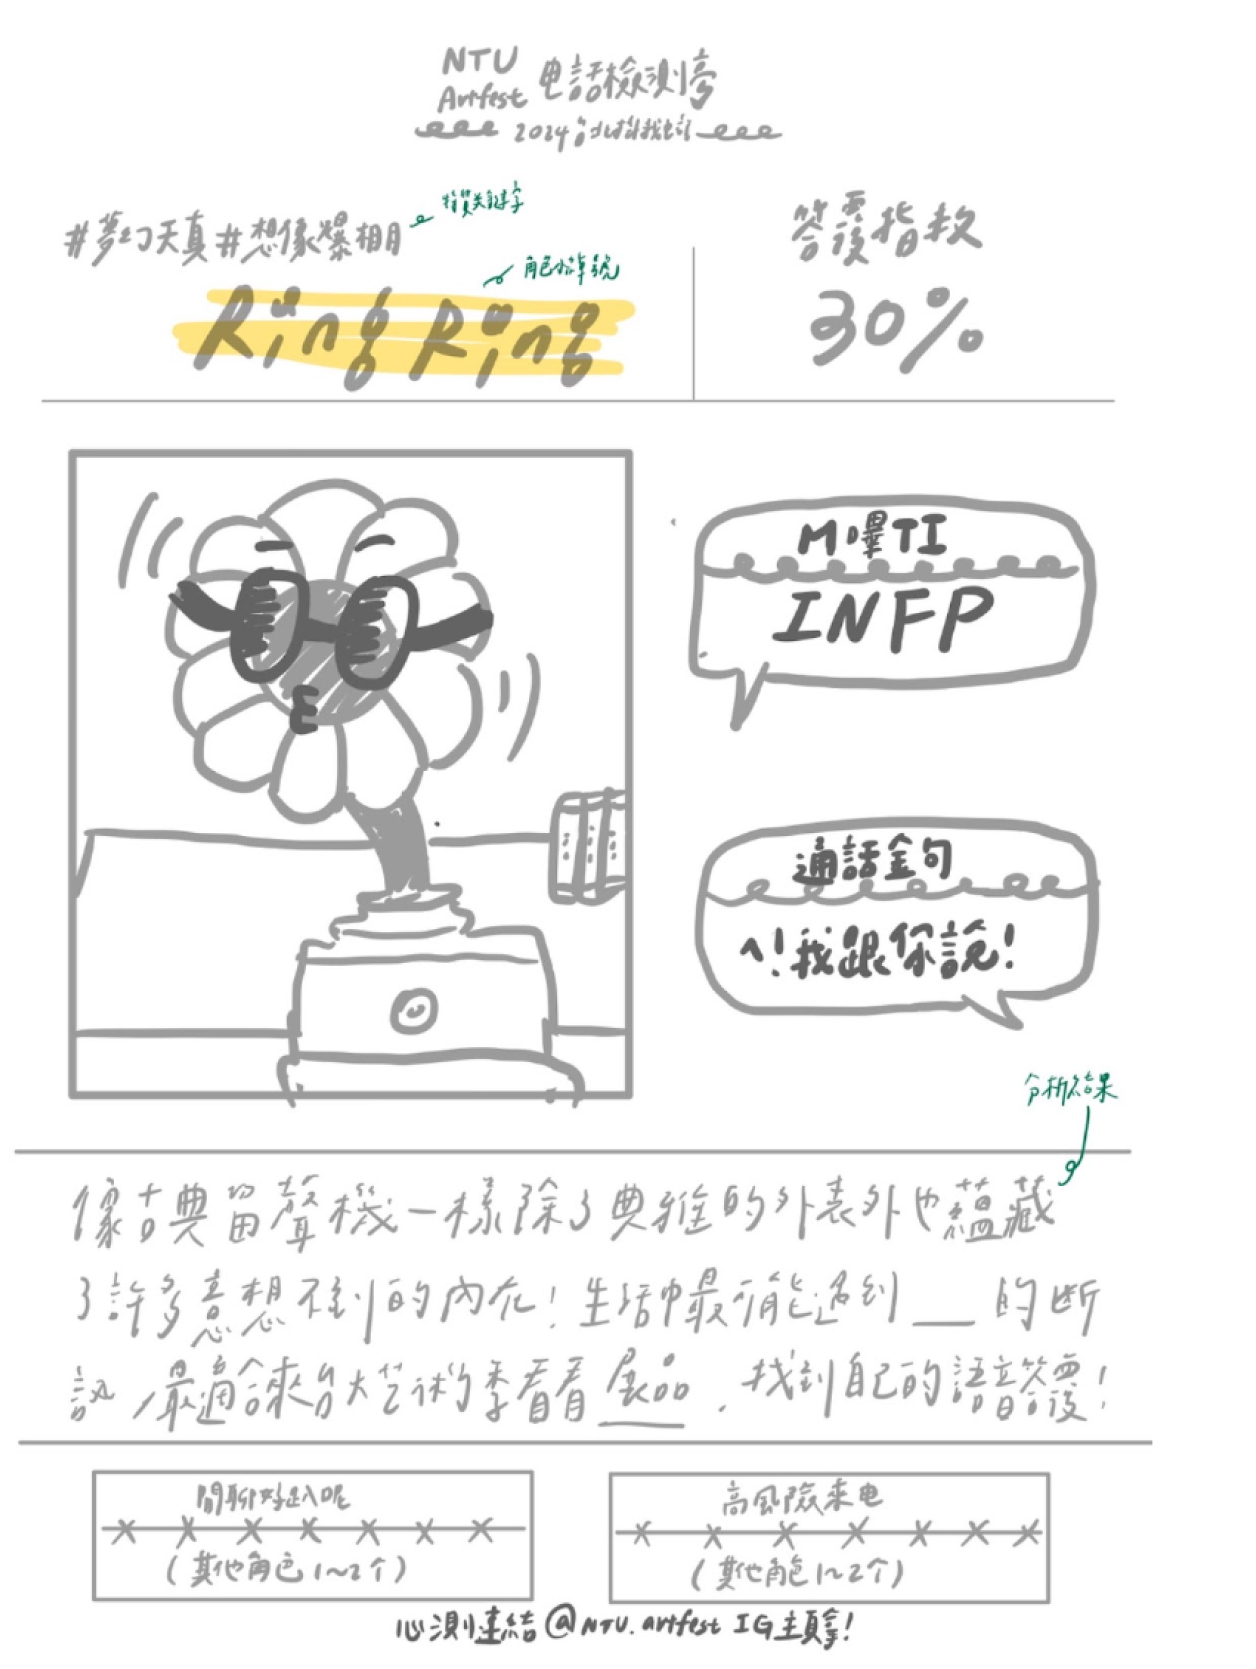 NTU
Artfest 电話檢測亭
2024
特質关鍵字
#夢幻天真#想像爆棚
答覆指数
角色小綽號
Ring Ring
30%
M嗶TI
INFP
通話金句
ㄟ!我跟你說!
分析結果
像古典留聲機一樣除了典雅的外表外也蘊藏
了許多意想不到的內在！生活中最可能遇到___的断
訊,最適合來台大艺術季看看展品,找到自己的語音答覆!
閒聊好趴呢
高風險來电
(其他角色1~2个)
(其他角色1~2个)
心測連結@NTU.artfest IG主頁拿!